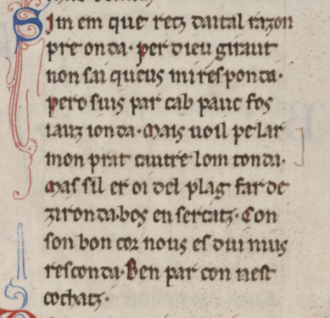 Sim em que retz daital razon
preonda · per dieu giraut
non sai queus mi responda ·
pero suis par cab pauc fos
iauzionda · Mais uoil pelar
mon prat cautre lom tonda ·
Mas sil er oi del plag far de
zironda · bos en sercatz · Con
son bon cor nous es dui mius
resconda · Ben par con uest
cochatz ·